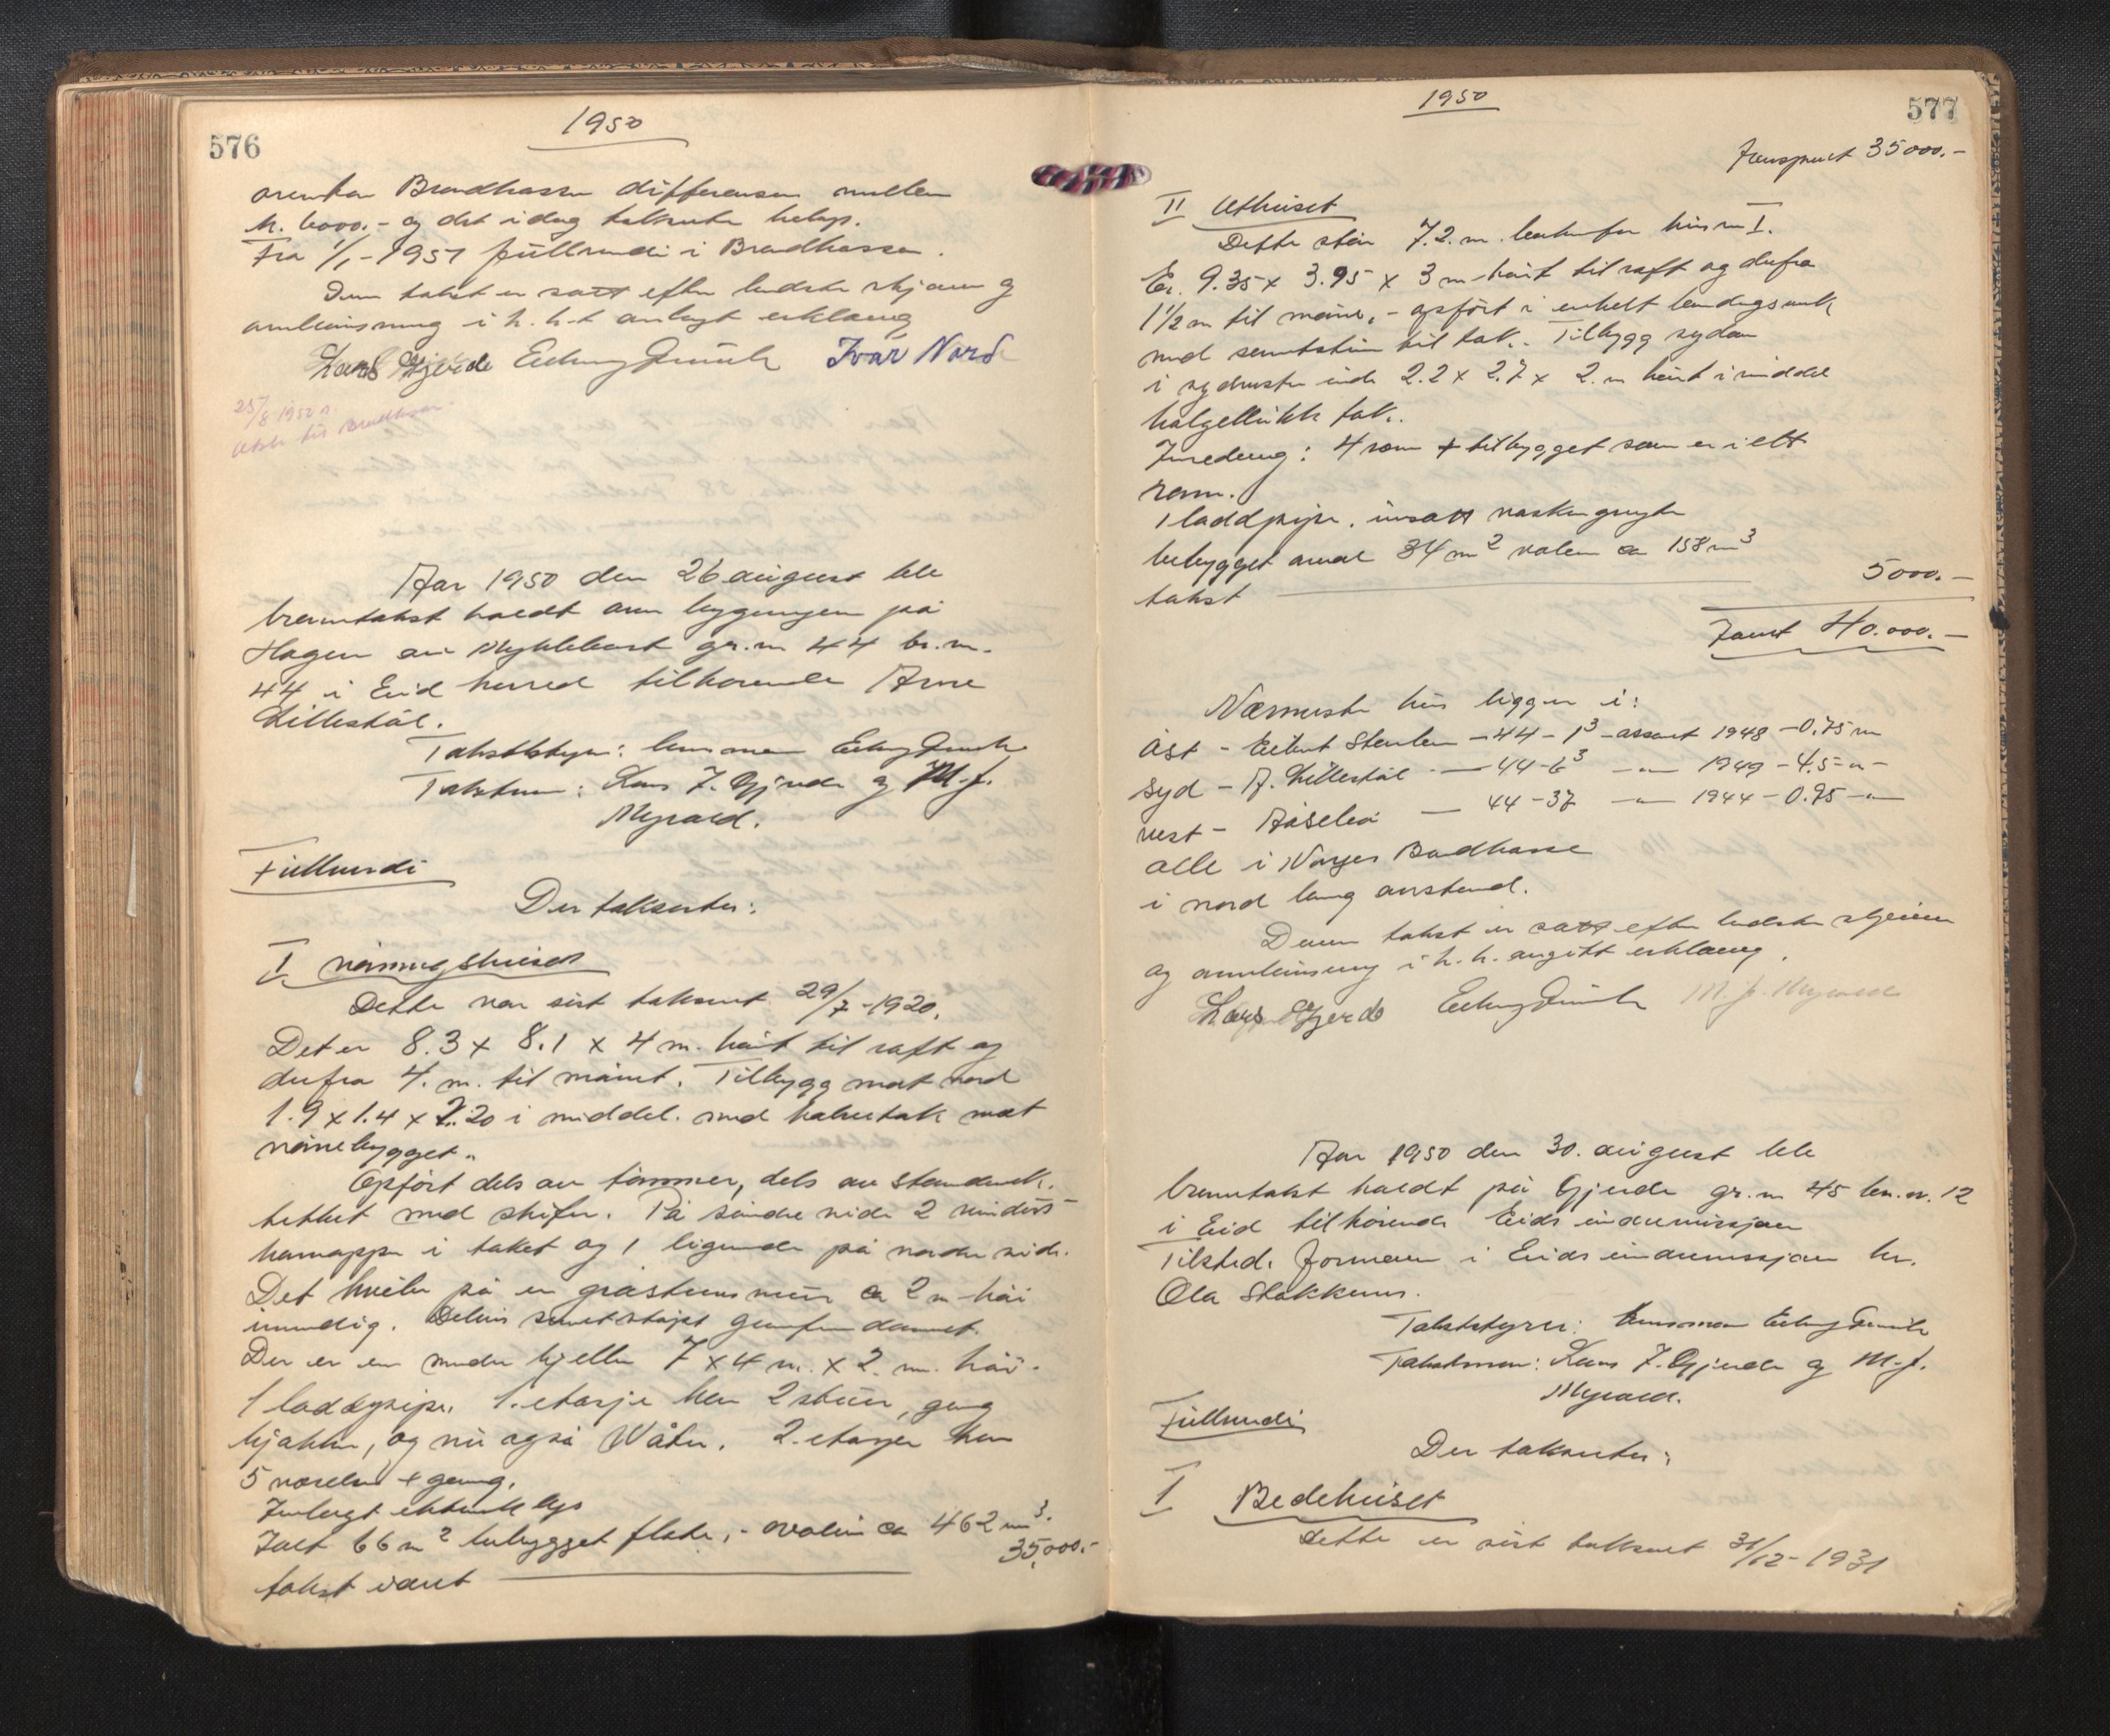 576
1950
Brandkassen differensen mellem
kr. 6000.- og det idag takserte beløp.
Fra 1/1-1951 fullverdi i Brandkassen.
Denn takst er satt efter bedste skjønn og
anvisning i h. h. t. avlagt erklæring
Lars Gjerde Erling Ivar Nord
25/8 1950
Utsk. til brandkassen.
Aar 1950 den 26 august ble
branntakst holdt over bygningen på
Hagen av Myklebust gr.nr 44 br.nr.
44 i Eid herred tilhørende Arne
Lillestøl.
Takstbestyrer: lensmann Erling
Takstmenn: Lars J. Gjerde og M. J.
Myrold.
Fullverdi
Der takserter:
I våningshuset
Dette var sist taksert 29/7-1920.
Det er 8.3 x 8.1 x 4 m. høit til raft og
derfra 4. m. til mønet. Tilbygg mot nord
1.9 x 1.4 x 2.20 i middel. med halvtak mot
vånebygget.
Opført dels av tømmer, dels av stenderverk.
tekket med skifer. På søndre side 2 vindus
kamapper i taket og 1 lignende på nordre side.
Det hviler på en gråstensmur ca 2 m høi
innvendig. Delvis sementstøpt
Der er en indre kjeller 7 x 4 m. x 2 m. høi.
1 loddpipe. 1. etasje har 2 stuer, gang
kjøkken, og nu også Våter. 2. etasjen har
5 værelser + gang.
Innlagt elektrisk lys
Ialt 66 m² bebygget flate, - volum ca 462 m³.
takst 35,000.-
577
1950
Transport 35000.-
II Uthuset
Dette står 7.2. m. hus nr I.
Er. 9.35 x 3.95 x 3 m høit til raft og derfra
1½ m til møne, - opført i enkelt bindingsverk
med sementstein til tak. Tilbygg
i ende 2.2 x 2.7 x 2. m høit i middel
bølgeblikk tak.
Innredning: 4 rom + tilbygget som er i ett
rom.
1 loddpipe. innsatt vaskegryte
bebygget areal 34 m² volum ca 158 m³
takst 5000.-
Ialt 40.000.-
Nærmeste hus ligger i:
Øst - Eilert - 44 - 1³ - assurt 1948 - 0.75 m
Syd - A. Lillestøl - 44-6³ -"- 1949 - 4.5 -"-
vest - Åsebø - 44-37 -"- 1944 - 0.75 -"-
alle i Norges Brandkasse
i nord lang avstand.
Denn takst er satt efter bedste skjønn
og anvisning i h. h. avgitt erklæring.
Lars Gjerde Erling M. J. Myrold
Aar 1950 den 30. august ble
branntakst holdt på Gjerde gr.nr 45 br.nr. 12
i Eid tilhørende Eids indremisjon
Tilsted. formann i Eids indremisjon hr.
Ola Stokkenes.
Takstbestyrer: lensmann Erling
Takstmenn: Lars J. Gjerde og M. J.
Myrold.
Fullverdi
Der takserter:
I Bedehuset
Dette er sist taksert 31/12-1931